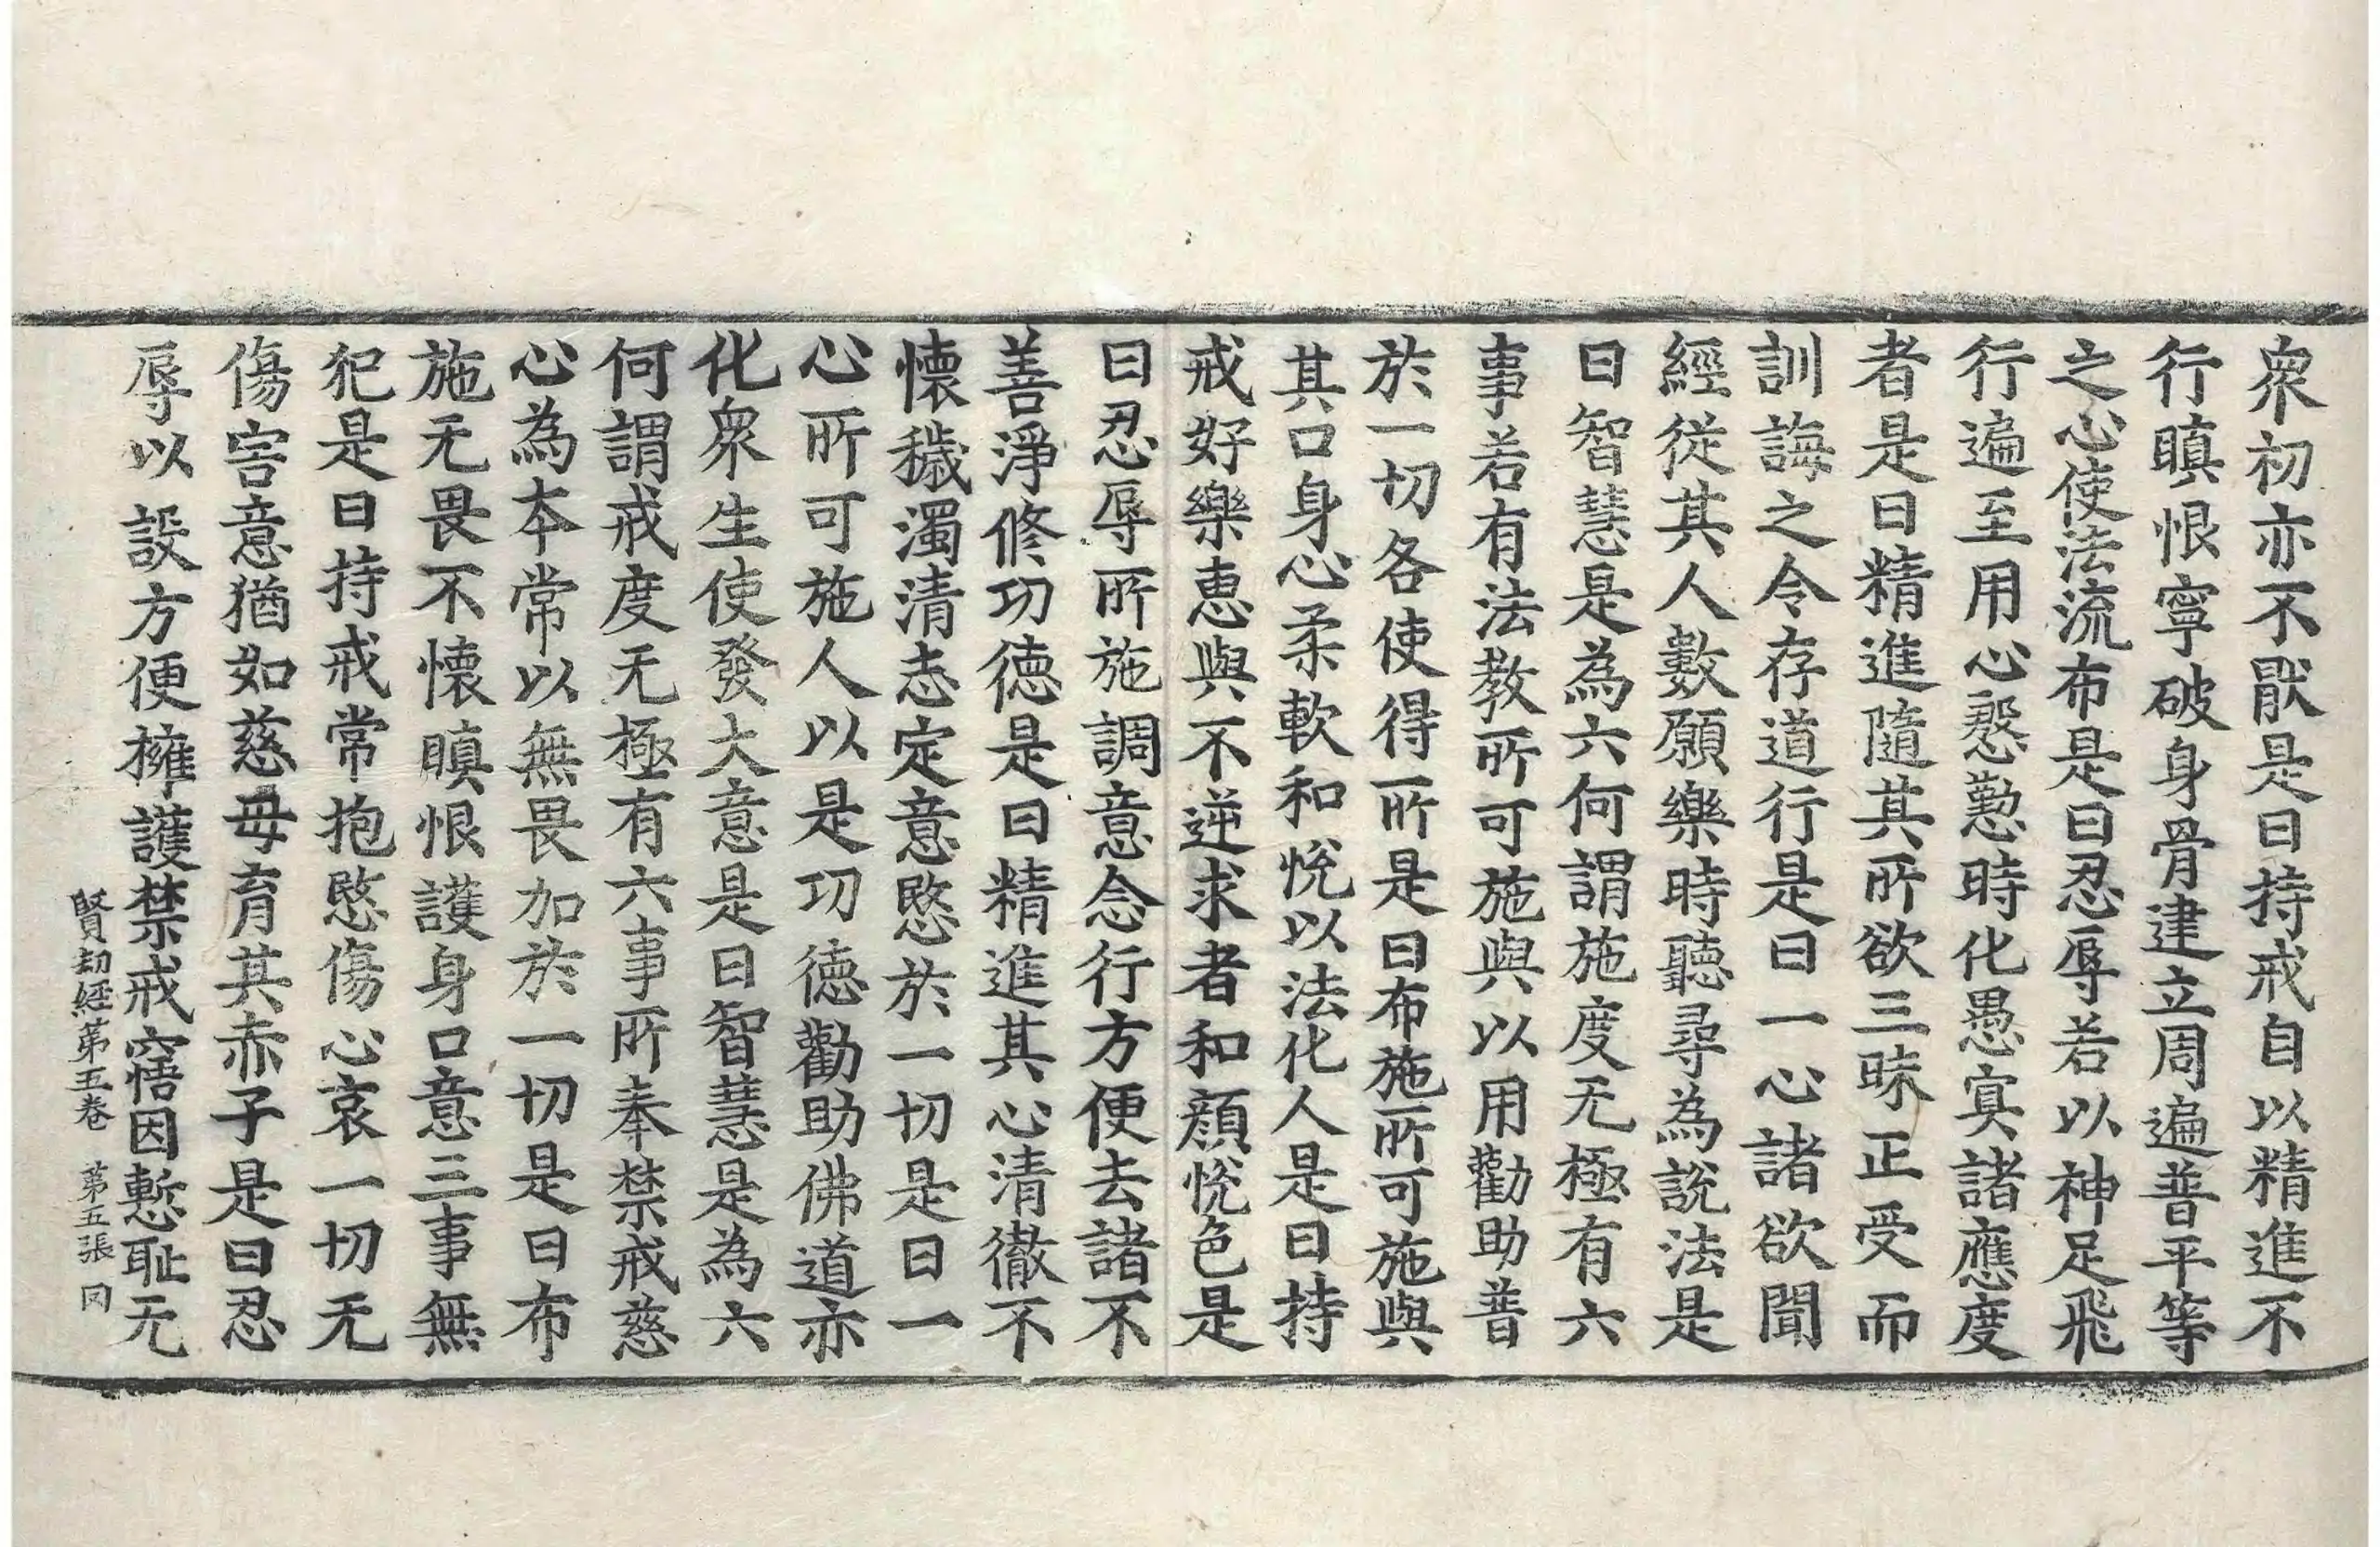 衆初亦不猒是曰持戒自以精進不
行瞋恨寧破身骨建立周遍普平等
之心使法流布是曰忍辱若以神足飛
行遍至用心慇懃時化愚冥諸應度
者是曰精進隨其所欲三昧正受而
訓誨之令存道行是曰一心諸欲聞
經從其人數願樂時聽尋為說法是
曰智慧是為六何謂施度无極有六
事若有法教所可施與以用勸助普
於一切各使得所是曰布施所可施與
其口身心柔軟和悅以法化人是曰持
戒好樂惠與不逆求者和顏悅色是
曰忍辱所施調意念行方便去諸不
善淨修功德是曰精進其心清徹不
懷穢濁清志定意愍於一切是曰一
心所可施人以是功德勸助佛道亦
化衆生使發大意是曰智慧是為六
何謂戒度无極有六事所奉禁戒慈
心為本常以無畏加於一切是曰布
施无畏不懷瞋恨護身口意三事無
犯是曰持戒常抱愍傷心哀一切无
傷害意猶如慈母育其赤子是曰忍
辱以設方便擁護禁戒寤因慙恥无
賢劫經第五卷 第五張